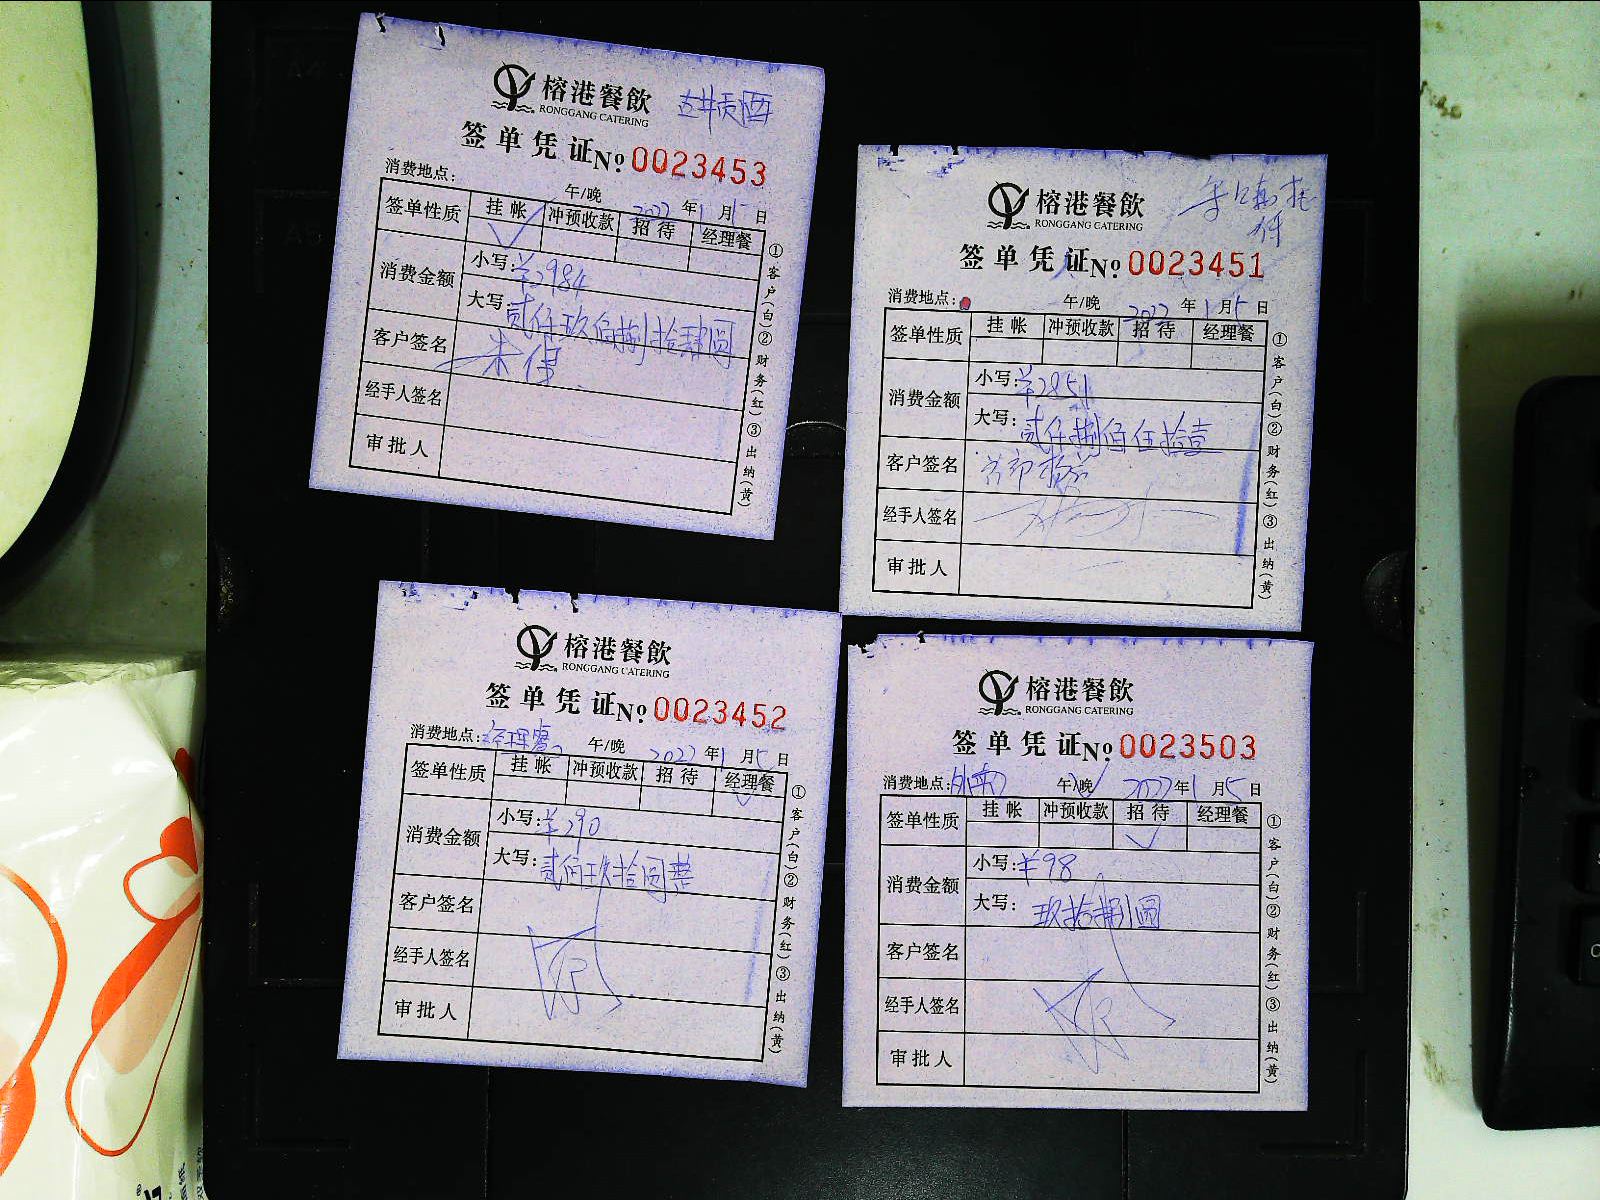 榕港餐飲
RONGGANG CATERING
古井贡酒
签单凭证 No 0023453
消费地点: 午/晚 2022年1月5日
签单性质 挂帐 冲预收款 招待 经理餐
消费金额 小写:¥2984
大写:贰仟玖佰捌拾肆圆
客户签名
经手人签名
审批人
①客户(白)②财务(红)③出纳(黄)
榕港餐飲
RONGGANG CATERING
签单凭证 No 0023451
消费地点: 午/晚 2022年1月5日
签单性质 挂帐 冲预收款 招待 经理餐
消费金额 小写:¥2851
大写:贰仟捌佰伍拾壹
客户签名
经手人签名
审批人
①客户(白)②财务(红)③出纳(黄)
榕港餐飲
RONGGANG CATERING
签单凭证 No 0023452
消费地点:经理餐 午/晚 2022年1月5日
签单性质 挂帐 冲预收款 招待 经理餐
消费金额 小写:¥290
大写:贰佰玖拾圆整
客户签名
经手人签名
审批人
①客户(白)②财务(红)③出纳(黄)
榕港餐飲
RONGGANG CATERING
签单凭证 No 0023503
消费地点: 午/晚 2022年1月5日
签单性质 挂帐 冲预收款 招待 经理餐
消费金额 小写:¥98
大写:玖拾捌圆
客户签名
经手人签名
审批人
①客户(白)②财务(红)③出纳(黄)